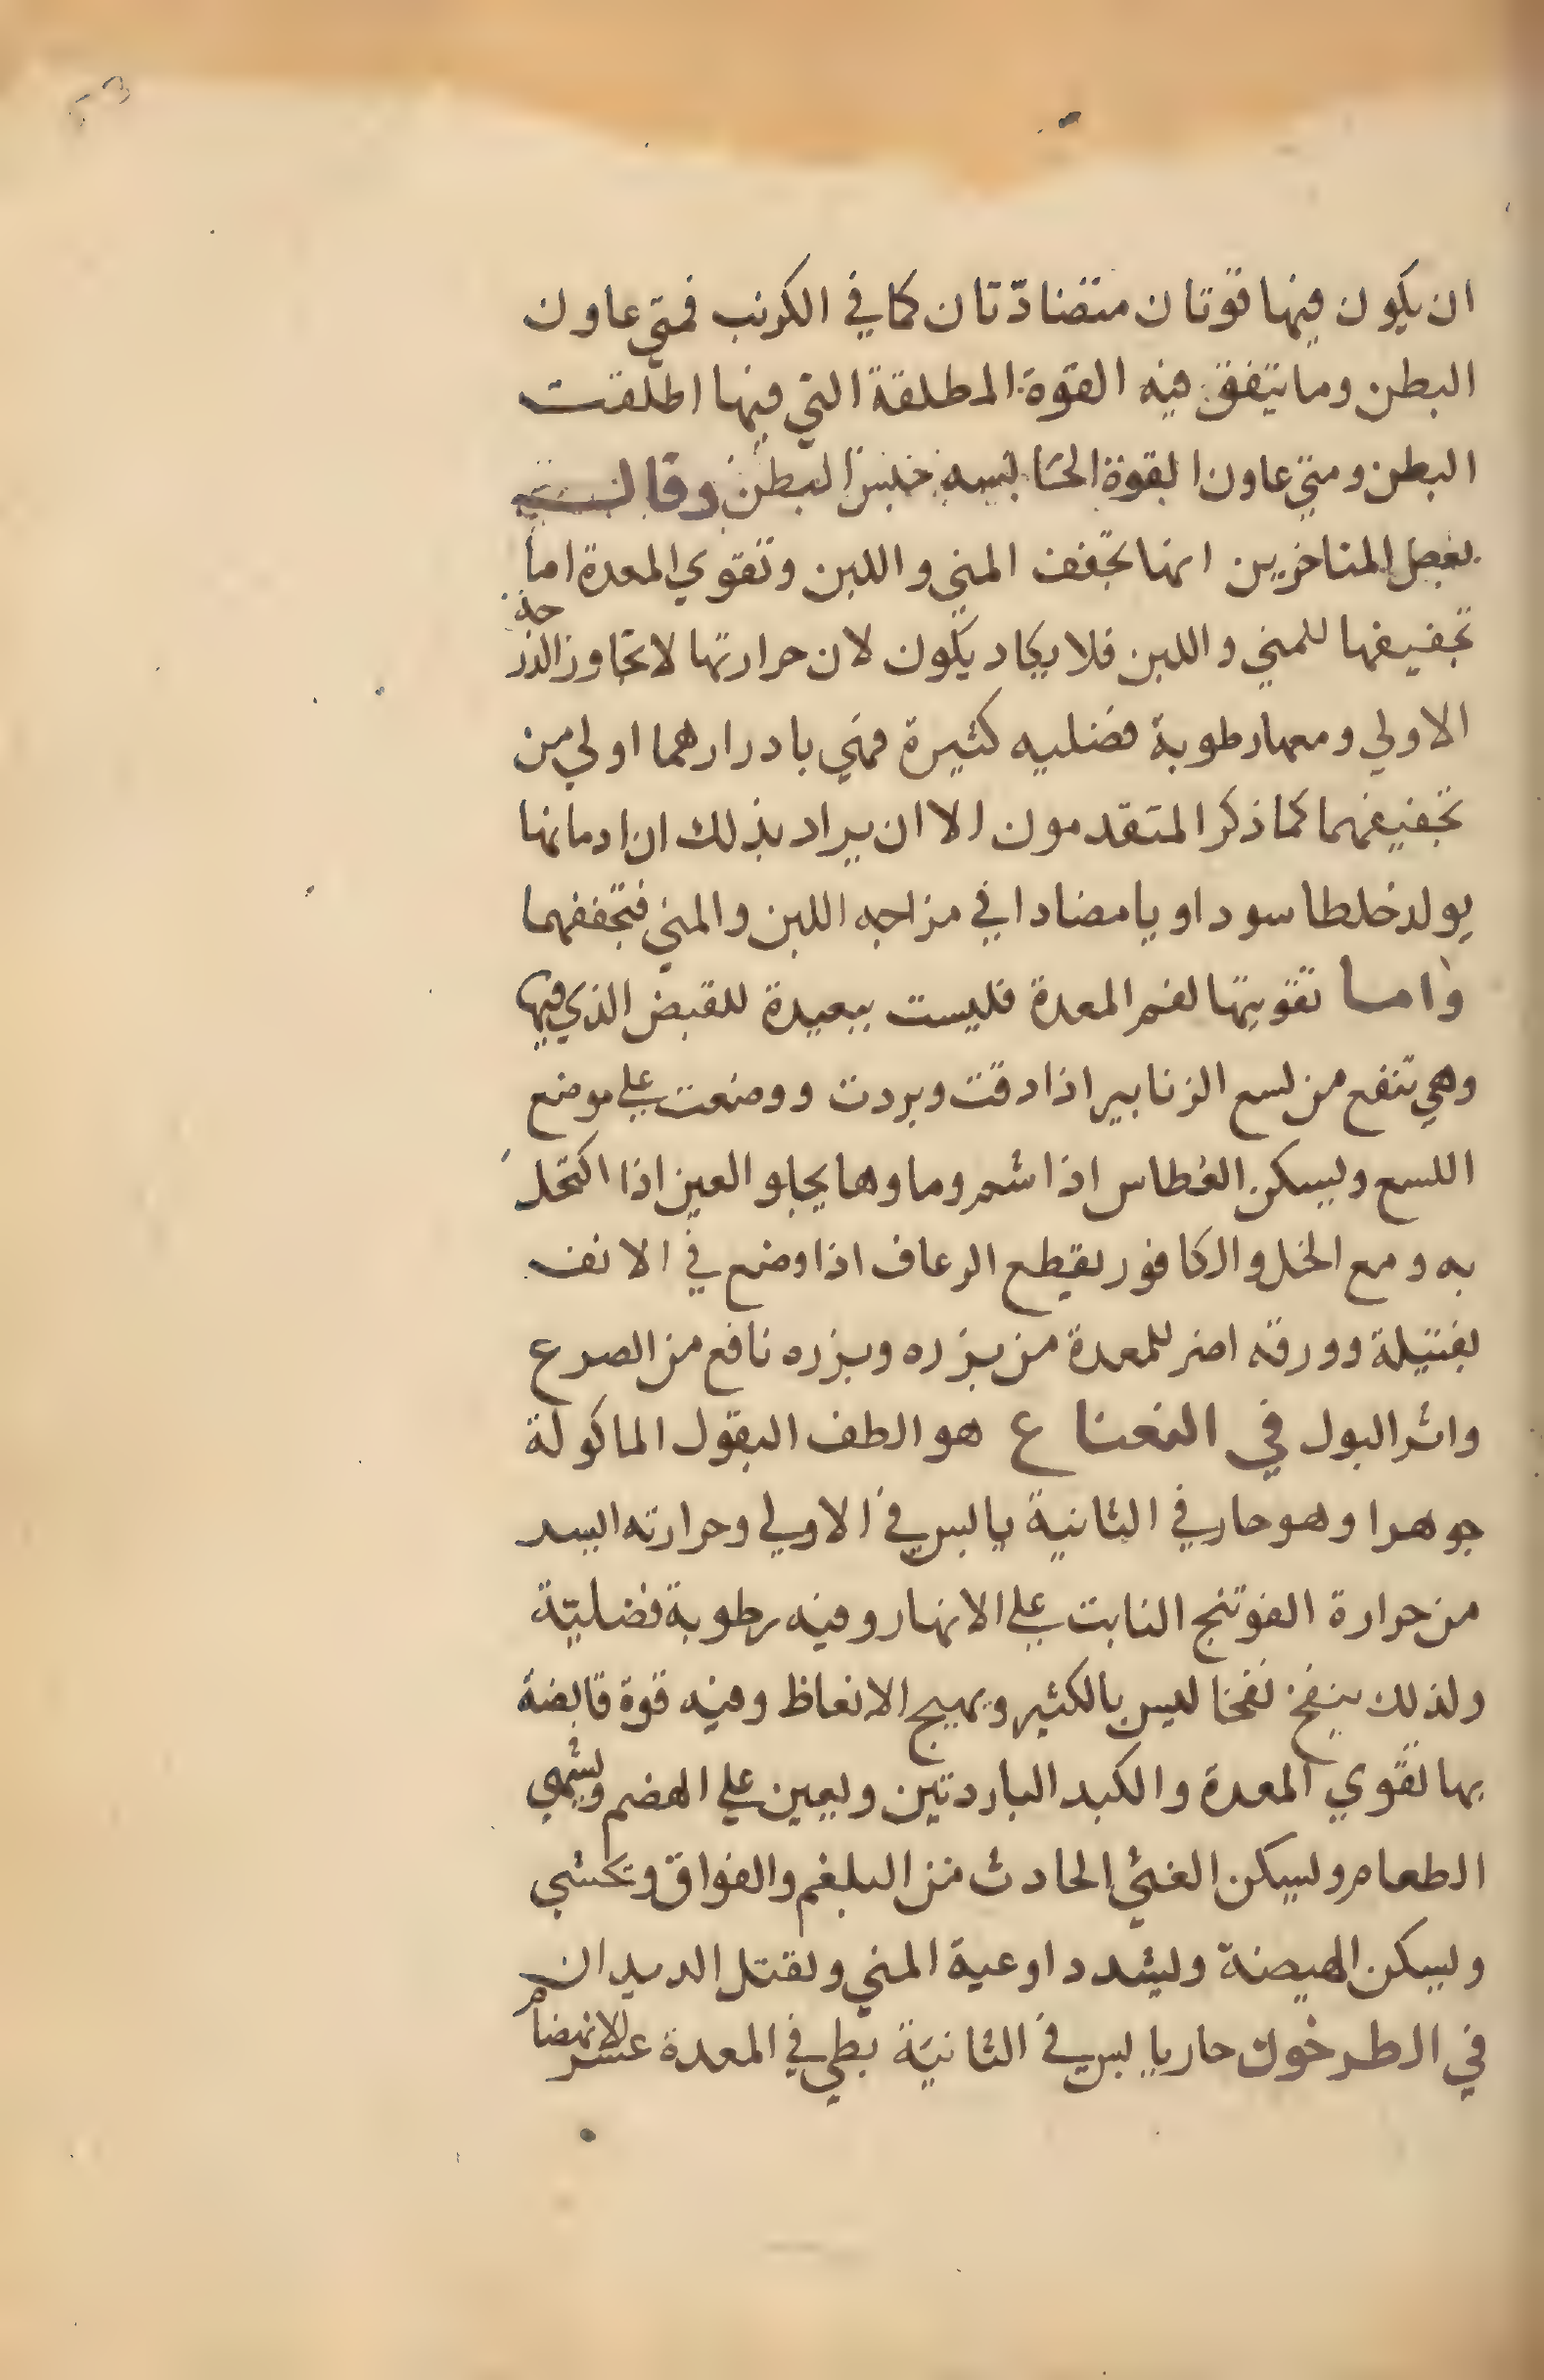 ان يكون فيها قوتان متضادّتان كما في الكرنب فمتي عاون
البطن وما يتفق فيه القوة المطلقة التي فيها اطلقت
البطن ومتي عاون القوة الحابسه حبس البطن وقال
بعض المتاخرين انها تجفف المني واللبن وتقوي المعدة اما
تجفيفها للمني واللبن فلا يكاد يكون لان حرارتها لا تجاوز الدرجة
الاولي ومعها رطوبة فضليه كثيرة فهي بادرارهما اولي من
تجفيفهما كما ذكر المتقدمون الا ان يراد بذلك ان ادمانها
يولد خلطا سوداويا مضادا في مزاجه اللبن والمني فتجففهما
واما تقويتها لفم المعدة فليست ببعيدة للقبض الذي فيها
وهي تنفع من لسع الزنابير اذا دقت وبردت ووضعت علي موضع
اللسع ويسكن العطاس اذا شم وماوها يجلو العين اذا اكتحل
به ومع الخل والكافور يقطع الرعاف اذا وضع في الانف
بفتيلة وورقه اضر للمعدة من بزره وبزره نافع من الصرع
واثر البول في النعناع هو الطف البقول الماكولة
جوهرا وهو حار في الثانية يابس في الاولي وحرارته ايسر
من حرارة الفوتنج النابت علي الانهار وفيه رطوبة فضليّة
ولذلك ينفخ نفخا ليس بالكثير ويهيج الانعاظ وفيه قوة قابضة
بها تقوي المعدة والكبد الباردتين ويعين علي الهضم ويشهي
الطعام ويسكن الغثي الحادث من البلغم والفواق ويحشي
ويسكن الهيضة ويشدد اوعية المني ويقتل الديدان
في الطرخون حار يابس في الثانية بطي في المعدة عسر الانهضام